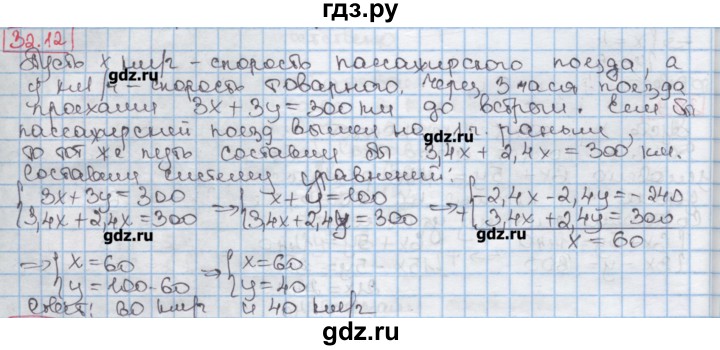 гдз.ру
32.12
Пусть x км/ч - скорость пассажирского поезда, а
y км/ч - скорость товарного. Через 3 часа поезда
проехали 3x+3y=300 км до встречи. Если бы
пассажирский поезд вышел на 1 ч. раньше
то тот же путь составил бы 3,4x + 2,4x = 300 км.
Составим систему уравнений:
{3x+3y=300 {3,4x+2,4x=300 ⇒ {x+y=100 {3,4x+2,4y=300 ⇒ + {-2,4x-2,4y=-240 {3,4x+2,4y=300
x=60
⇒ {x=60 {y=100-60 ⇒ {x=60 {y=40
Ответ: 60 км/ч и 40 км/ч
gdz.ru
gdz.ru
gdz.ru
gdz.ru
gdz.ru
gdz.ru
gdz.ru